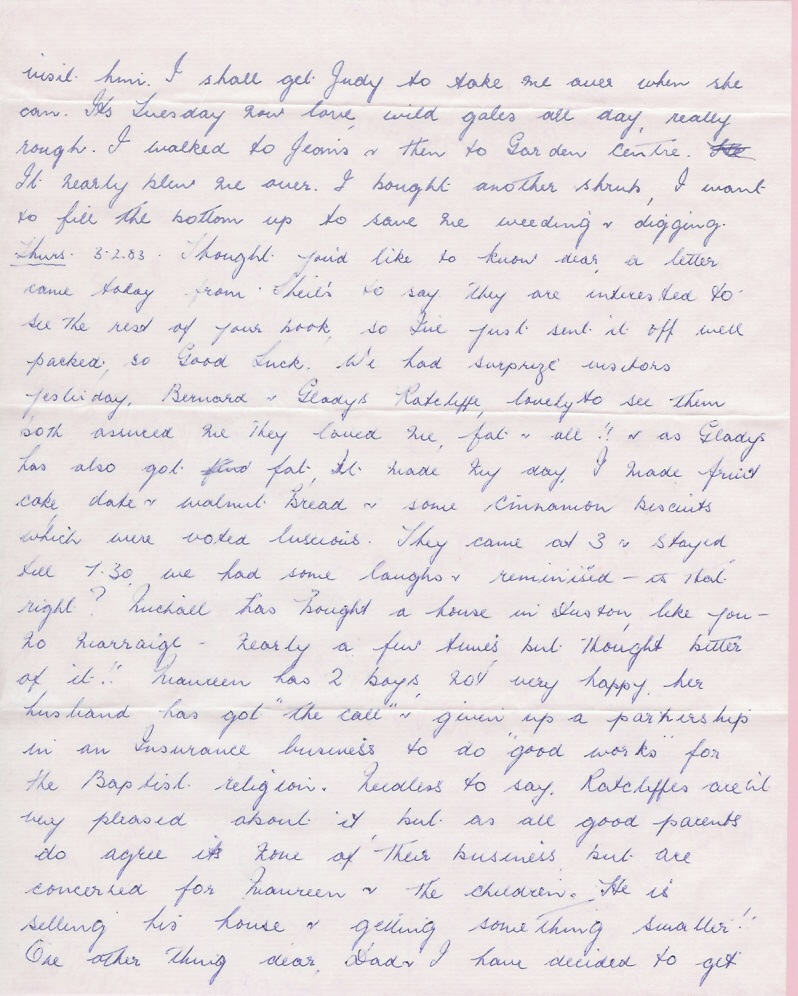 visit him. I shall get Judy to take me over when she
can. Its Tuesday now love, wild gales all day, really
rough. I walked to Jean's & then to Garden Centre.
It nearly blew me over. I bought another shrub, I want
to fill the bottom up to save me weeding & digging.
Thurs. 3.2.83. Thought you'd like to know dear, a letter
came today from Sheil's to say they are interested to
see the rest of your book, so I've just sent it off well
packed, so Good Luck. We had surprize visitors
yesterday, Bernard & Gladys Ratcliffe, lovely to see them
both assured me they loved me, fat & all!! & as Gladys
has also got fat, It made my day, I made fruit
cake, date & walnut Bread & some cinnamon biscuits
which were voted luscious. They came at 3 & stayed
till 7.30, we had some laughs & reminised – is that
right? Michael has Bought a house in Duston, like you –
no marraige – nearly a few times but thought better
of it!! Maureen has 2 boys, not very happy, her
husband has got "the call" & given up a partnership
in an Insurance business to do "good works" for
the Baptist religion. Needless to say, Ratcliffes are'nt
very pleased about it but as all good parents
do agree its none of their business but are
concerned for Maureen & the children. He is
selling his house & getting something smaller!!
One other thing dear, Dad & I have decided to get